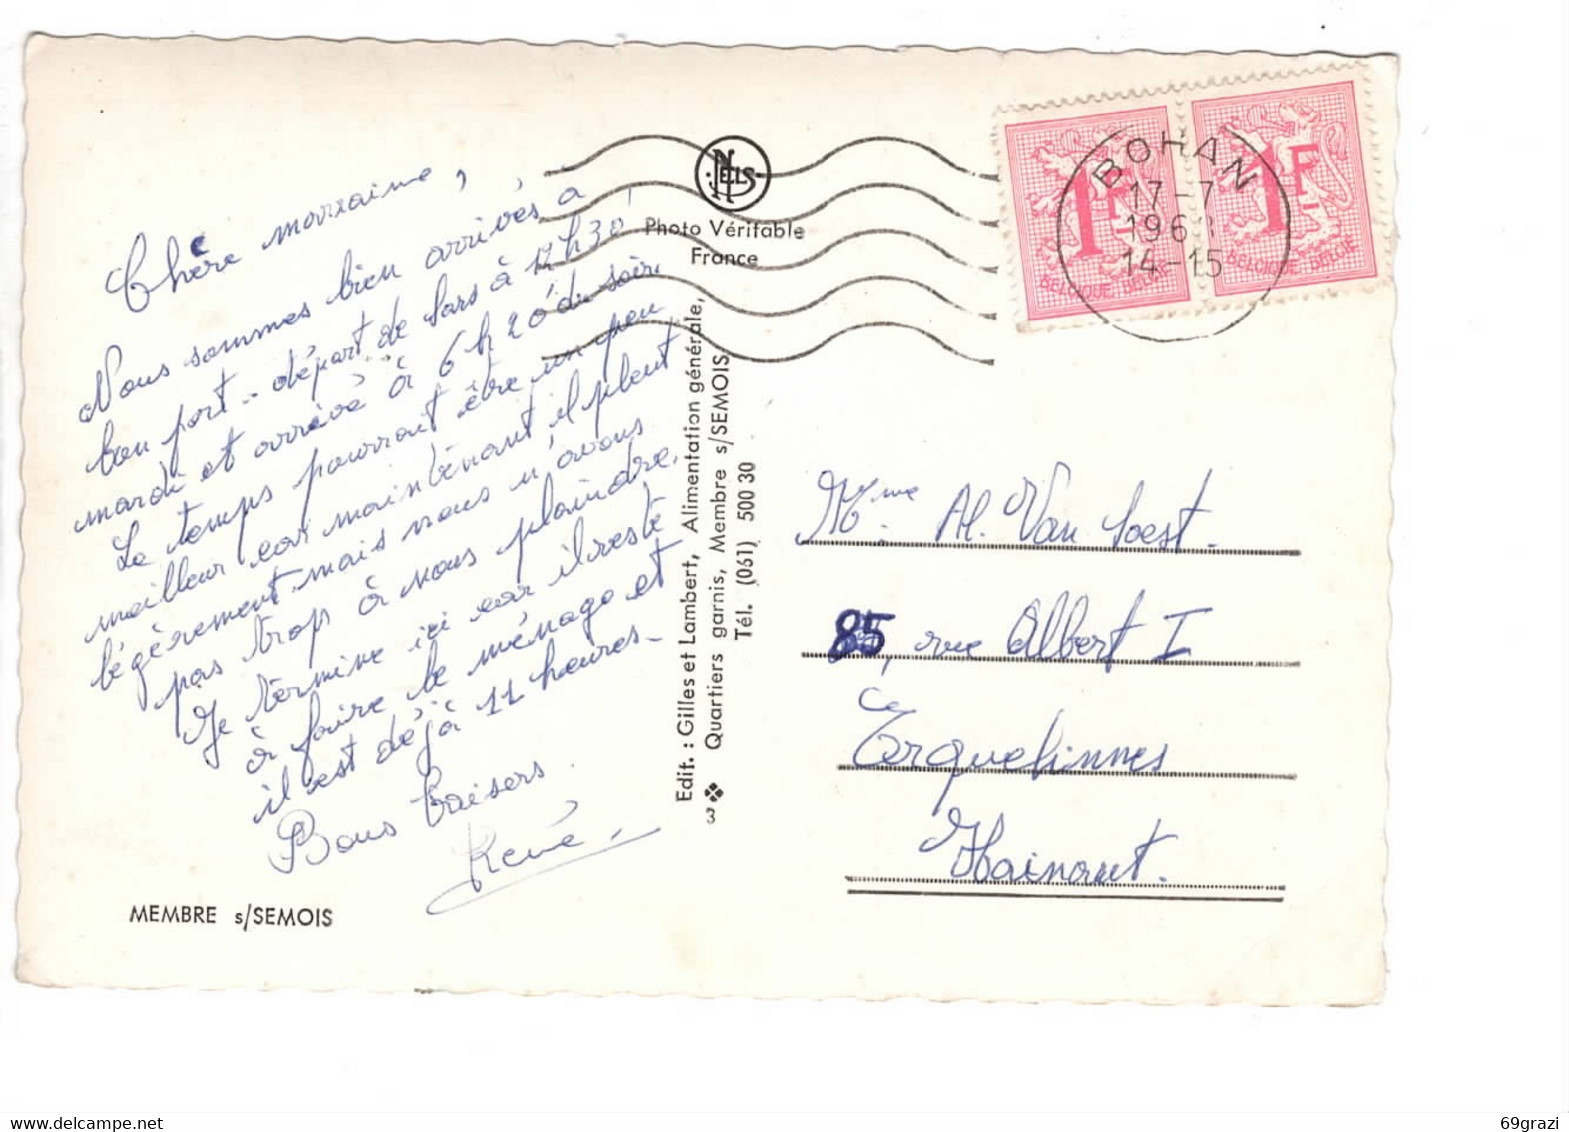 Chère marraine,
Nous sommes bien arrivés à
bon port - départ de Sars à 12h30'
mardi et arrivée à 6h20' du soir.
Le temps pourrait être un peu
meilleur car maintenant, il pleut
légèrement mais nous n'avons
pas trop à nous plaindre.
Je termine ici car il reste
à faire le ménage et
il est déjà 11 heures.
Bons baisers.
René
MEMBRE s/SEMOIS
NELS
Photo Véritable
France
Edit. : Gilles et Lambert, Alimentation générale,
Quartiers garnis, Membre s/SEMOIS.
Tél. (061) 500 30
3
BOHAN
17-7
196
14-15
1F
BELGIQUE BELGIE
1F
BELGIQUE BELGIE
Mme Al. Van Soest.
85, rue Albert I
Erquelinnes
Hainaut.
delcampe.net
69grazi